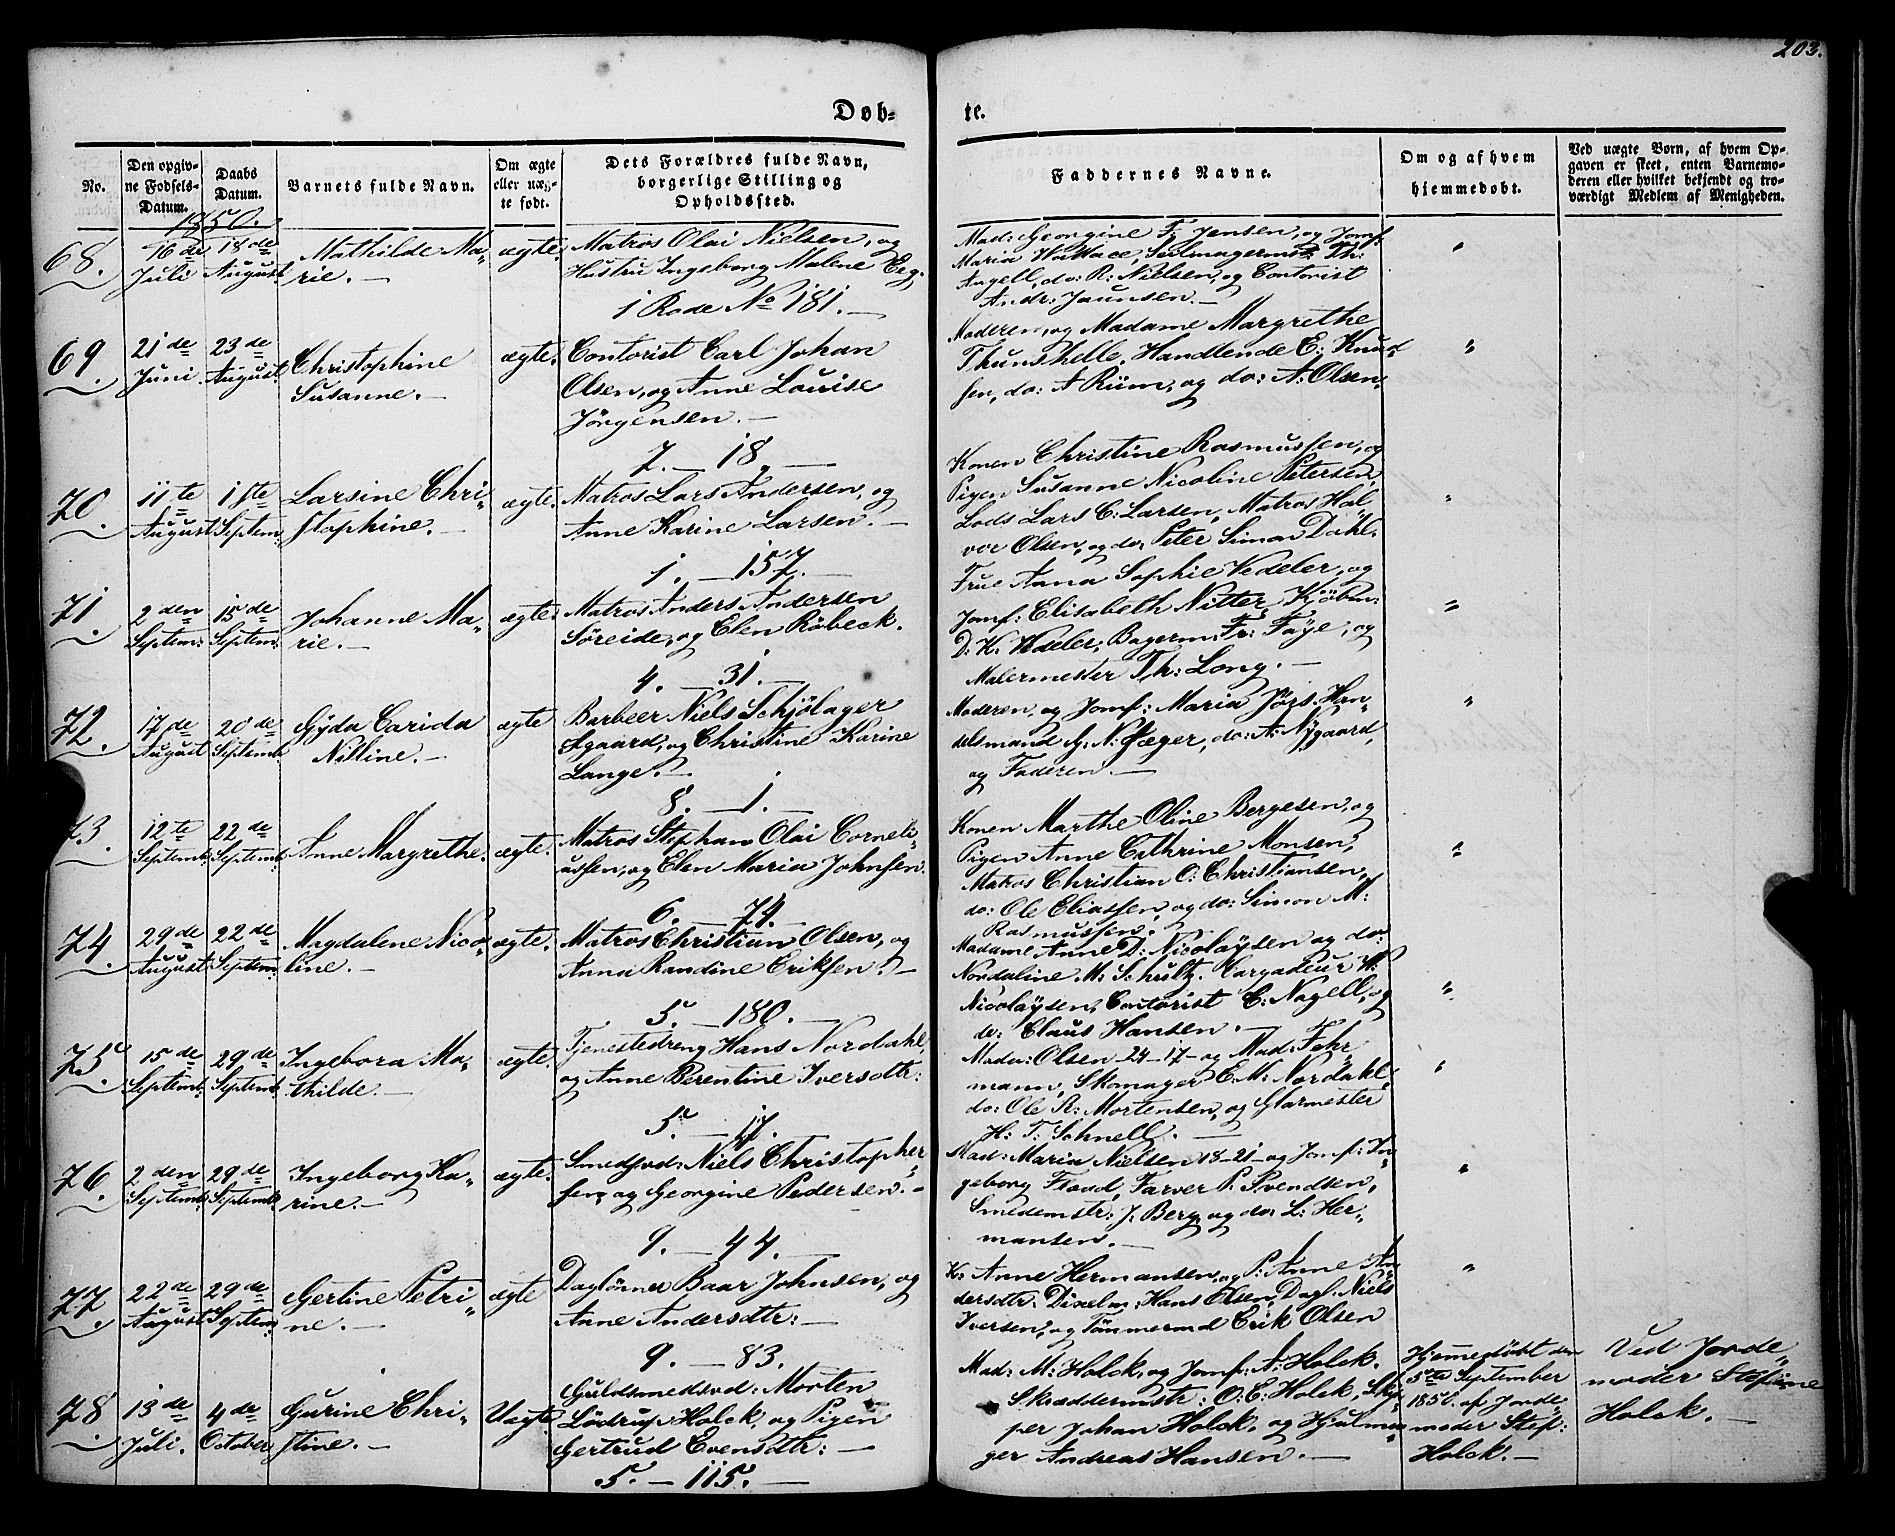 203.
Døb-
te.
No.
Den opgiv-
ne Fødsels-
Datum.
Daabs
Datum.
Barnets fulde Navn.
Om ægte
eller uæg-
te født.
Dets Forældres fulde Navn,
borgerlige Stilling og
Opholdssted.
Faddernes Navne.
Om og af hvem
hjemmedøbt.
Ved uægte Børn, af hvem Op-
gaven er skeet, enten Barnemo-
deren eller hvilket bekjendt og tro-
værdigt Medlem af Menigheden.
1850.
68.
16de
Juli
18de
August
Mathilde Ma-
rie.
ægte.
Matros Olai Nielsen, og
Hustru Ingeborg Malene Eeg.
1 Rode No 181.
Mad: Georgine F. Jensen, og Jomf:
Maria Wallace, Seilmagermst: Th:
Angell, do: R: Nielsen, og Contorist
Andr: Jaunsen.
"
69.
21de
Juni
23de
August
Christophine
Susanne.
ægte.
Contorist Carl Johan
Olsen, og Anne Louise
Jörgensen.
7. — 18.
Moderen, og Madame Margrethe
Thunshelle, Handlende E: Knud-
sen, do: A Rüm, og do: A: Olsen.
"
70.
11te
August
1ste
Septem:
Larsine Chri-
stophine.
ægte.
Matros Lars Andersen, og
Anne Karine Larsen.
1. — 157.
Konen Christine Rasmussen, og
Pigen Susanne Nicoline Petersen,
Lods Lars C: Larsen, Matros Hal-
vor Olsen, og do: Peter Simon Dahl.
"
71.
2den
Septem:
15de
Septem:
Johanne Ma-
rie.
ægte.
Matros Anders Andersen
Söreide, og Elen Röbeck.
4. — 31.
Frue Anna Sophie Vedeler, og
Jomf: Elisabeth Nitter, Kjöbm:
D: K: Vedeler, Bagerm: Fr: Faye, og
Malermester Th: Long.
"
72.
17de
August
20de
Septemb:
Gyda Carida
Nilline.
ægte
Barbeer Niels Schjölager
Öfgaard, og Christine Karine
Lange.
8. — 1.
Moderen, og Jomf: Maria Jörs. Han-
delsmand G. N: Jæger, do: A: Nygaard,
og Faderen.
"
73.
12te
Septemb:
22de
Septemb:
Anne Margrethe.
ægte.
Matros Stephan Olai Corneli-
ussen, og Elen Maria Johnsen.
6. — 74.
Konen Marthe Oline Bergesen, og
Pigen Anne Cathrine Monsen,
Matros Christian O: Christiansen,
do: Ole Eliassen, og do: Simon M:
Rasmussen.
"
74.
29de
August
22de
Septem:
Magdalene Nico-
line.
ægte.
Matros Christian Olsen, og
Anna Randine Eriksen.
5. — 180.
Madame Anne D: Nicolaysen og do:
Nordaline M: Schultz. Cargadeur W:
Nicolaysen, Contorist C: Nagell, og
do: Claus Hansen.
"
75.
15de
Septemb:
29de
Septemb:
Ingebora Ma-
thilde.
ægte.
Tjenestedreng Hans Nordahl,
og Anne Berentine Iversdtr:
5. — 17.
Mada: Olsen 24-17- og Mad: Fehr-
mann, Skomager E: M: Nordahl,
do: Ole R: Mortensen, og Glarmester
H: T: Schnell.
"
76.
2den
Septemb:
29de
Septemb:
Ingeborg Ka-
rine.
ægte.
Smedsvd: Niels Christopher-
sen, og Georgine Pedersen.
9. — 44.
Mad: Maria Nielsen 18-21- og Jomf: In-
geborg Flood, Farver P. Svendsen,
Smedemstr: J: Berg, og do: L: Her-
mansen.
"
77.
22de
August
29de
Septem:
Gertine Petri-
ne.
ægte
Daglönner Baar Johnsen, og
Anne Andersdtr:
9. — 83.
K: Anne Hermansen, og P: Anne An-
dersdtr. Hans Olsen, Dagl: Niels
Iversen, og Tömmermd Erik Olsen
"
78.
13de
Juli.
4de
October
Gurine Chri-
stine.
Uægte.
Guldsmedsvd: Morten
Lödrup Holck, og Pigen
Gertrud Evensdtr:
5. — 115.
Mad: M: Holck, og Jomf: A: Holck.
Skræddermstr: O: E: Holck, Skip-
per Johan Holck, og Hjulma-
ger Andreas Hansen.
Hjemmedöbt den
5te September
1850. af Jorde-
moder Stef:
Holck.
Ved Jorde-
moder Stefine
Holck.